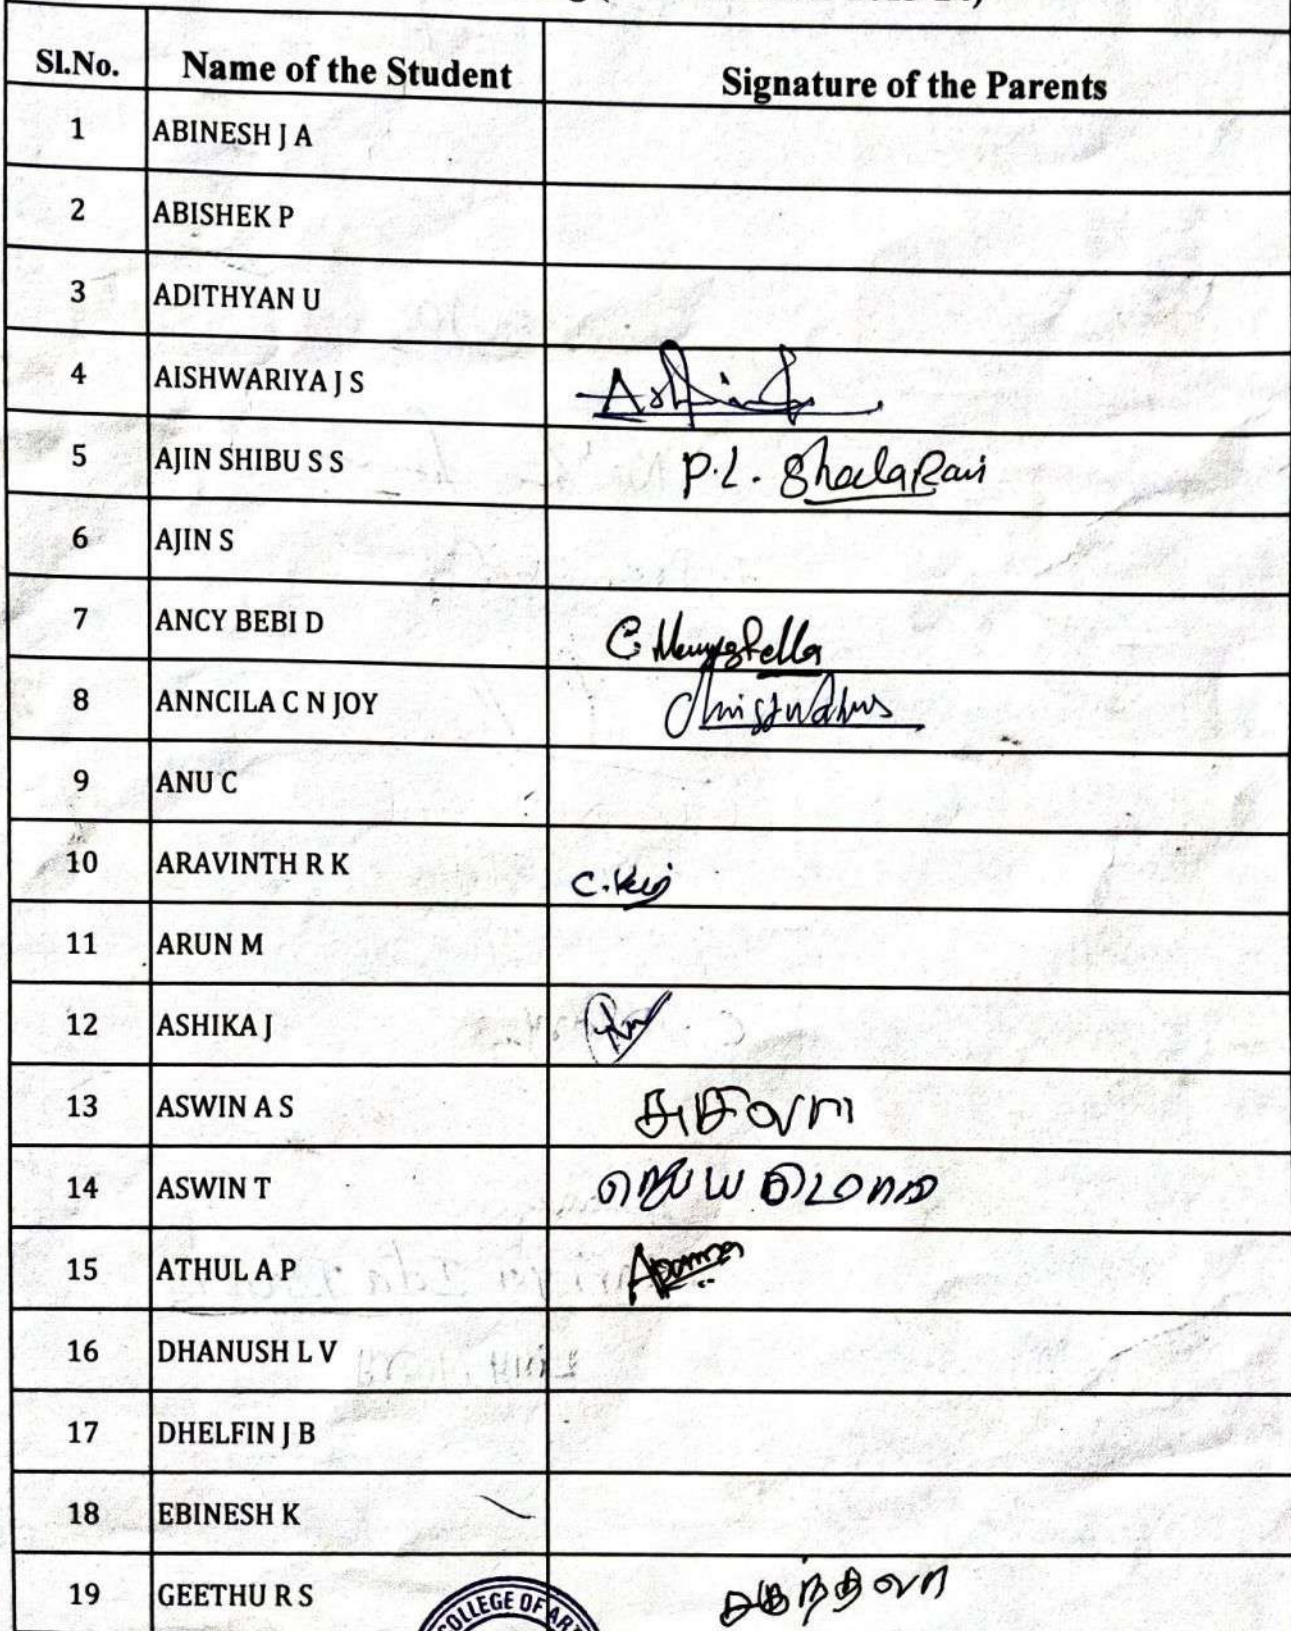 Sl.No. Name of the Student Signature of the Parents
1 ABINESH J A
2 ABISHEK P
3 ADITHYAN U
4 AISHWARIYA J S
5 AJIN SHIBU S S P.L. Sheela Rani
6 AJIN S
7 ANCY BEBI D
8 ANNCILA C N JOY
9 ANU C
10 ARAVINTH R K
11 ARUN M
12 ASHIKA J
13 ASWIN A S
14 ASWIN T
15 ATHUL A P
16 DHANUSH L V
17 DHELFIN J B
18 EBINESH K
19 GEETHU R S
COLLEGE OF